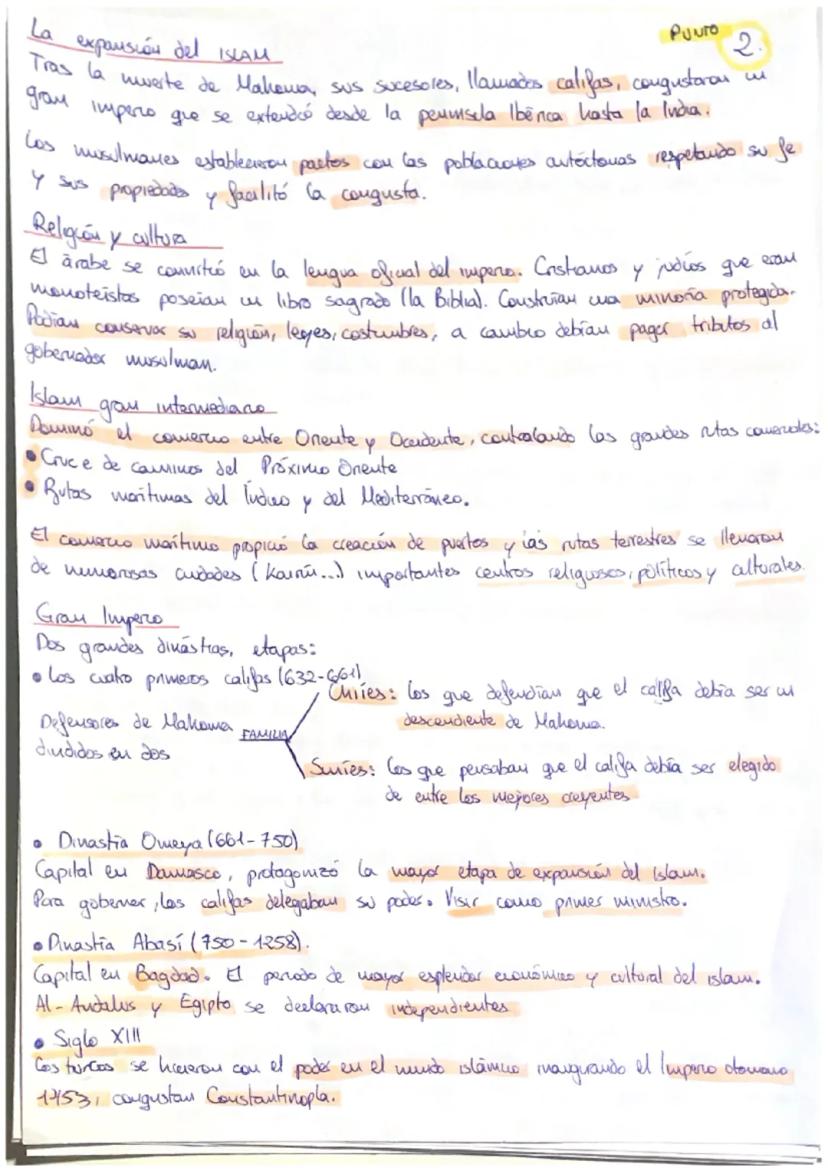 PUNTO 2.
La expansión del ISLAM
Tras la muerte de Mahoma, sus sucesores, llamados califas, conquistaron un
gran imperio que se extendió desde la península Ibérica hasta la India.
Los musulmanes establecieron pactos con las poblaciones autóctonas respetando su fe
y sus propiedades y facilitó la conquista.
Religión y cultura
El árabe se convirtió en la lengua oficial del imperio. Cristianos y judíos que eran
monoteístas poseían un libro sagrado (la Biblia). Construían una minoría protegida.
Podían conservar su religión, leyes, costumbres, a cambio debían pagar tributos al
gobernador musulman.
Islam gran intermediario
Dominó el comercio entre Oriente y Occidente, controlando las grandes rutas comerciales:
• Cruce de caminos del Próximo Oriente
• Rutas marítimas del Índico y del Mediterráneo.
El comercio marítimo propició la creación de puertos y las rutas terrestres se llenaron
de numerosas ciudades (Kairúu...) importantes centros religiosos, políticos y culturales.
Gran Imperio
Dos grandes dinástias, etapas:
• Los cuatro primeros califas (632-661)
Chiíes: los que defendían que el califa debía ser un
descendiente de Mahoma.
Defensores de Mahoma FAMILIA
divididos en dos
Suníes: Los que pensaban que el califa debía ser elegido
de entre los mejores creyentes
• Dinastía Omeya (661-750)
Capital en Damasco, protagonizó la mayor etapa de expansión del islam.
Para gobernar, los califas delegaban su poder. Visir como primer ministro.
• Dinastía Abasí (750-1258).
Capital en Bagdad. El periodo de mayor esplendor económico y cultural del islam.
Al-Andalus y Egipto se declararon independientes
• Siglo XIII
Los turcos se hicieron con el poder en el mundo islámico inaugurando el Imperio otomano
1453, conquistan Constantinopla.